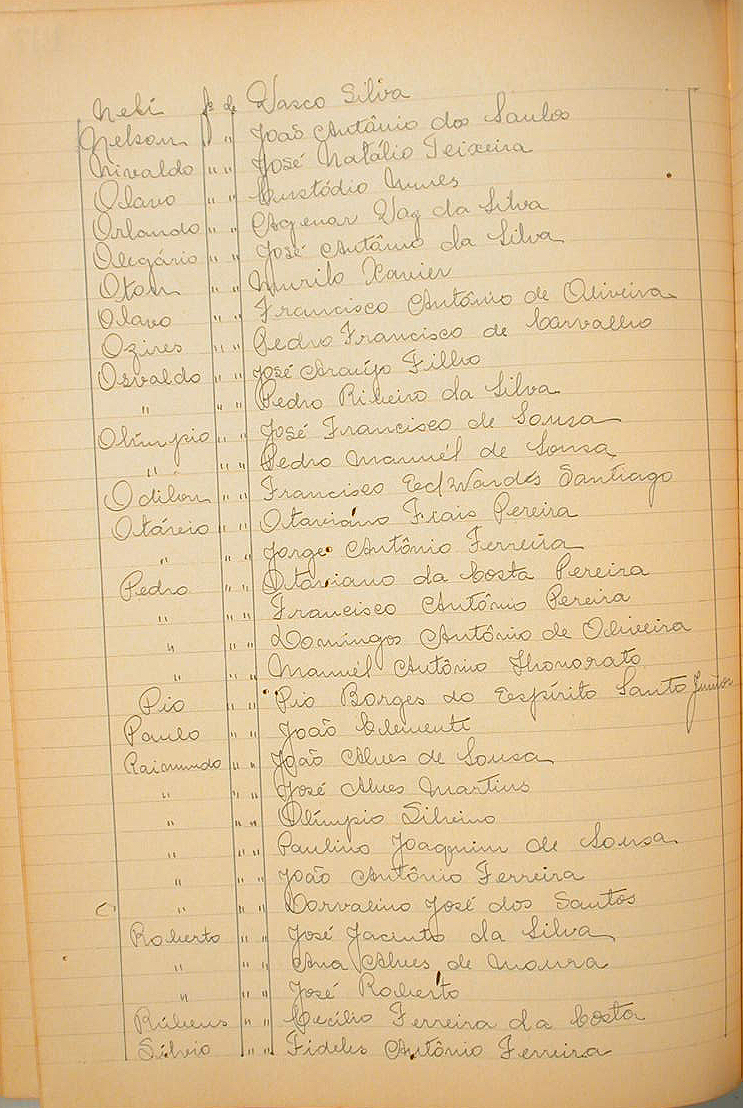 Nebi fº de Vasco Silva
Nelson " " João Antônio dos Santos
Nivaldo " " José Natálio Teixeira
Olavo " " Custódio Nunes
Orlando " " Agenor Vaz da Silva
Olegário " " José Antônio da Silva
Otom " " Murilo Xavier
Olavo " " Francisco Antônio de Oliveira
Ozires " " Pedro Francisco de Carvalho
Osvaldo " " José Araújo Filho
" " " Pedro Ribeiro da Silva
Olímpio " " José Francisco de Sousa
" " " Pedro Manuél de Sousa
Odilon " " Francisco Edwardes Santiago
Otávio " " Otaviano Frais Pereira
" " " Jorge Antônio Ferreira
Pedro " " Otaviano da Costa Pereira
" " " Francisco Antônio Pereira
" " " Domingos Antônio de Oliveira
" " " Manuél Antônio Honorato
Pio " " Pio Borges do Espírito Santo Junior
Paulo " " João Clemente
Raimundo " " João Alves de Sousa
" " " José Alves Martins
" " " Olímpio Silvino
" " " Paulino Joaquim de Sousa
" " " João Antônio Ferreira
" " " Dorvalino José dos Santos
Roberto " " José Jacinto da Silva
" " " Ana Alves de Moura
" " " José Roberto
Rúbens " " Cecílio Ferreira da Costa
Silvio " " Fideles Antônio Ferreira